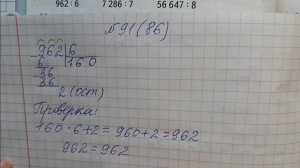 962 : 6 7 286 : 7 56 647 : 8
№ 91 (86)
962 6
6 160
36
36
2 (ост)
Проверка:
160 · 6 + 2 = 960 + 2 = 962
962 = 962